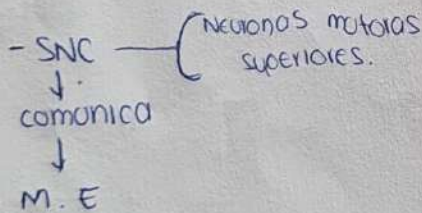 - SNC
Neuronas motoras
superiores.
comunica
M. E